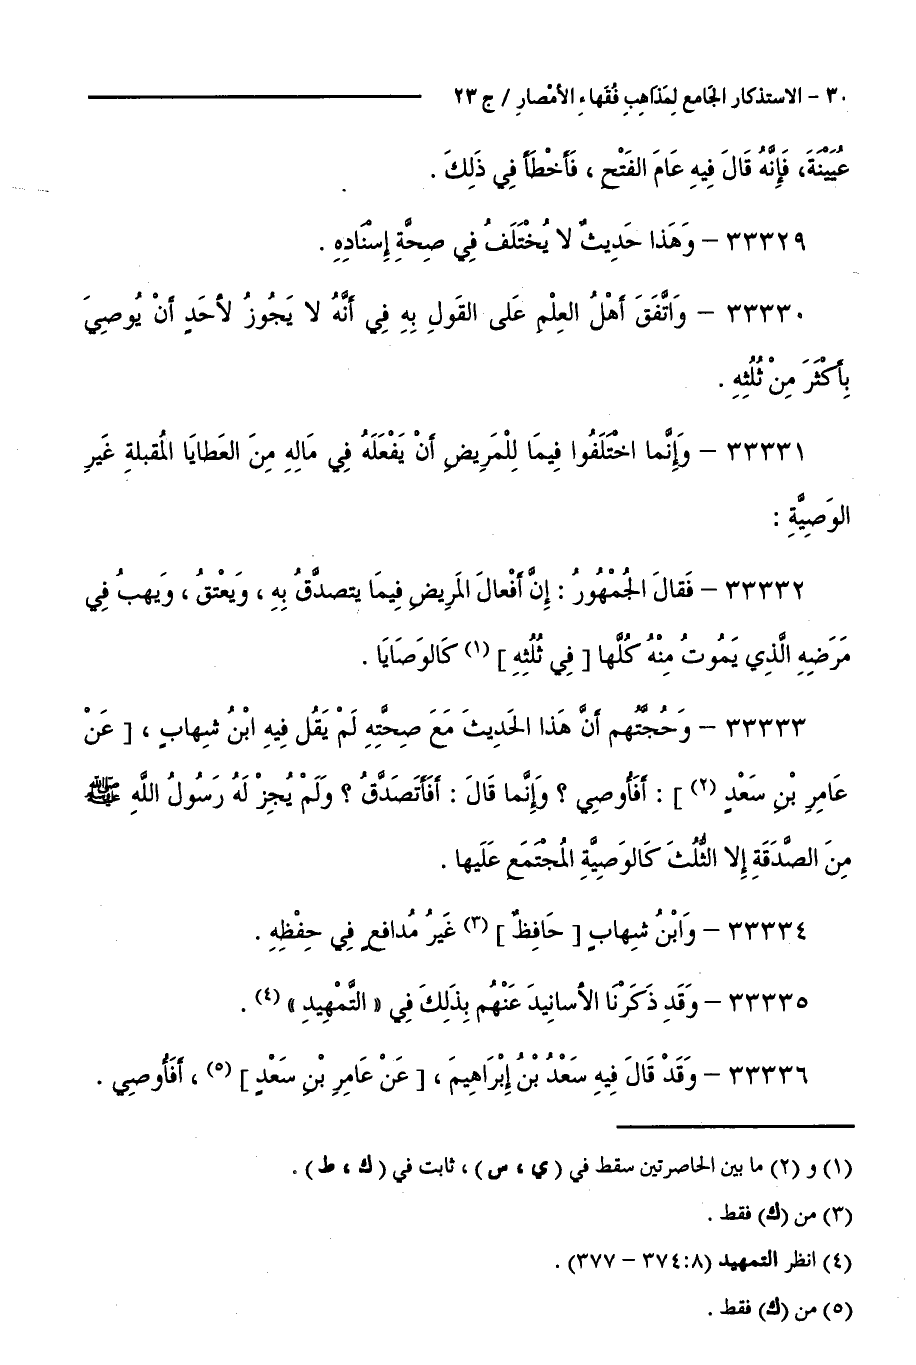 ٣٠ - الاستذكار الجَامع لِمَذَاهِبِ فُقَهاءِ الأمْصارِ / ج ٢٣
عُيَيْنَةَ، فَإِنَّهُ قَالَ فِيهِ عَامَ الفَتْحِ ، فَأَخْطَأَ فِي ذَلِكَ .
٣٣٣٢٩ - وَهَذا حَدِيثٌ لا يُخْتَلَفُ فِي صِحَّةِ إِسْنَادِهِ .
٣٣٣٣٠ - وَاتَّفَقَ أَهْلُ العِلْمِ عَلى القَولِ بِهِ فِي أَنَّهُ لا يَجُوزُ لأَحَدٍ أَنْ يُوصِيَ
بِأَكْثَرَ مِنْ ثُلُثِهِ .
٣٣٣٣١ - وَإِنَّما اخْتَلَفُوا فِيمَا لِلْمَرِيضِ أَنْ يَفْعَلَهُ فِي مَالِهِ مِنَ العَطايَا المُقبلةِ غَيرِ
الوَصِيَّةِ :
٣٣٣٣٢ - فَقالَ الجُمْهُورُ : إِنَّ أَفْعالَ المَرِيضِ فِيمَا يتصدَّقُ بِهِ ، وَيَعْتقُ ، وَيهبُ فِي
مَرَضِهِ الَّذِي يَمُوتُ مِنْهُ كُلَّها [ فِي ثُلُثِهِ ] (١) كَالوَصَايَا .
٣٣٣٣٣ - وَحُجَّتُهم أَنَّ هَذا الحَدِيثَ مَعَ صِحتَّهِ لَمْ يَقُل فِيهِ ابْنُ شهابٍ ، [ عَنْ
عَامِرِ بْنِ سَعْدٍ (٢) ] : أَفَأُوصِي ؟ وَإِنَّما قَالَ : أَفَأَتَصَدَّقُ ؟ وَلَمْ يُجِزْ لَهُ رَسُولُ اللَّهِ ﷺ
مِنَ الصَّدَقَةِ إِلا الثُّلُثَ كَالوَصِيَّةِ المُجْتَمَعِ عَلَيها .
٣٣٣٣٤ - وَابْنُ شهابٍ [ حَافِظٌ ] (٣) غَيرُ مُدافعٍ فِي حِفْظِهِ .
٣٣٣٣٥ - وَقَدِ ذَكَرْنَا الأسانِيدَ عَنْهُم بِذَلِكَ فِي « التَّمْهِيدِ » (٤) .
٣٣٣٣٦ - وَقَدْ قَالَ فِيهِ سَعْدُ بْنُ إِبْرَاهِيمَ ، [ عَنْ عَامِرِ بْنِ سَعْدٍ ] (٥) ، أَفَأُوصِي .
(١) و (٢) ما بين الحاصرتين سقط في ( ي ، س ) ، ثابت في ( ك ، ط ) .
(٣) من (ك) فقط .
(٤) انظر التمهيد (٨:٣٧٤ – ٣٧٧) .
(٥) من (ك) فقط .